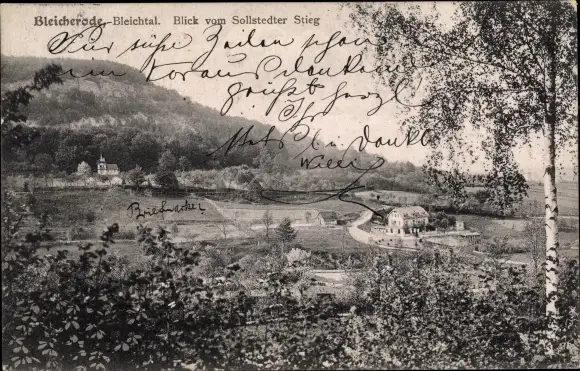 Bleicherode-Bleichtal. Blick vom Sollstedter Stieg
Für süße Zeilen schon
im Voraus dankend
grüßt
Ihr herzl.
dankb
Willi
Briefmarke